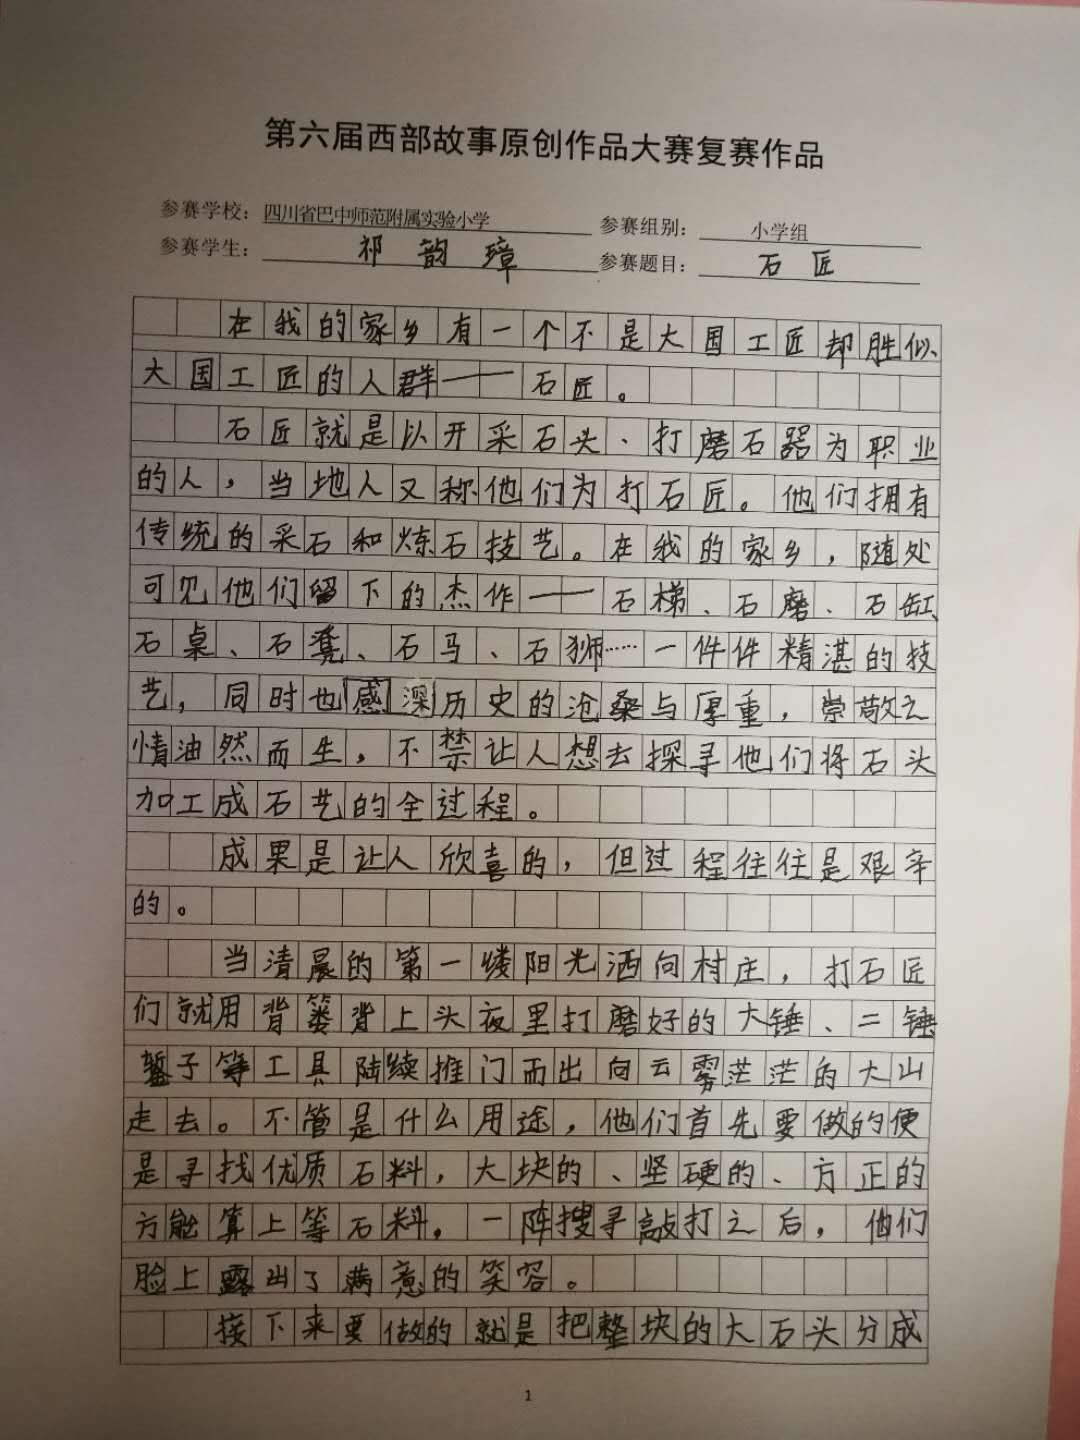 第六届西部故事原创作品大赛复赛作品
参赛学校：四川省巴中师范附属实验小学 参赛组别：小学组
参赛学生：祁韵璋 参赛题目：石匠
在我的家乡有一个不是大国工匠却胜似
大国工匠的人群——石匠。
石匠就是以开采石头、打磨石器为职业
的人，当地人又称他们为打石匠。他们拥有
传统的采石和炼石技艺。在我的家乡，随处
可见他们留下的杰作——石梯、石磨、石缸、
石桌、石凳、石马、石狮……一件件精湛的技
艺，同时也感深历史的沧桑与厚重，崇敬之
情油然而生，不禁让人想去探寻他们将石头
加工成石艺的全过程。
成果是让人欣喜的，但过程往往是艰辛
的。
当清晨的第一缕阳光洒向村庄，打石匠
们就用背篓背上头夜里打磨好的大锤、二锤
錾子等工具陆续推门而出向云雾茫茫的大山
走去。不管是什么用途，他们首先要做的便
是寻找优质石料，大块的、坚硬的、方正的
方能算上等石料。一阵搜寻敲打之后，他们
脸上露出了满意的笑容。
接下来要做的就是把整块的大石头分成
1